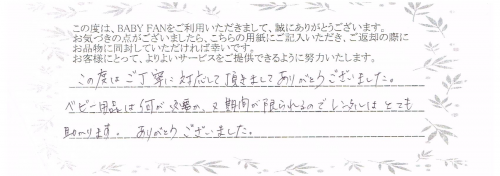 この度は、BABY FANをご利用いただきまして、誠にありがとうございます。
お気づきの点がございましたら、こちらの用紙にご記入いただき、ご返却の際に
お品物に同封していただければ幸いです。
お客様にとって、よりよいサービスをご提供できるように努力いたします。
この度はご丁寧に対応して頂きましてありがとうございました。
ベビー用品は何が必要か、又期間が限られるのでレンタルはとても
助かります。 ありがとうございました。